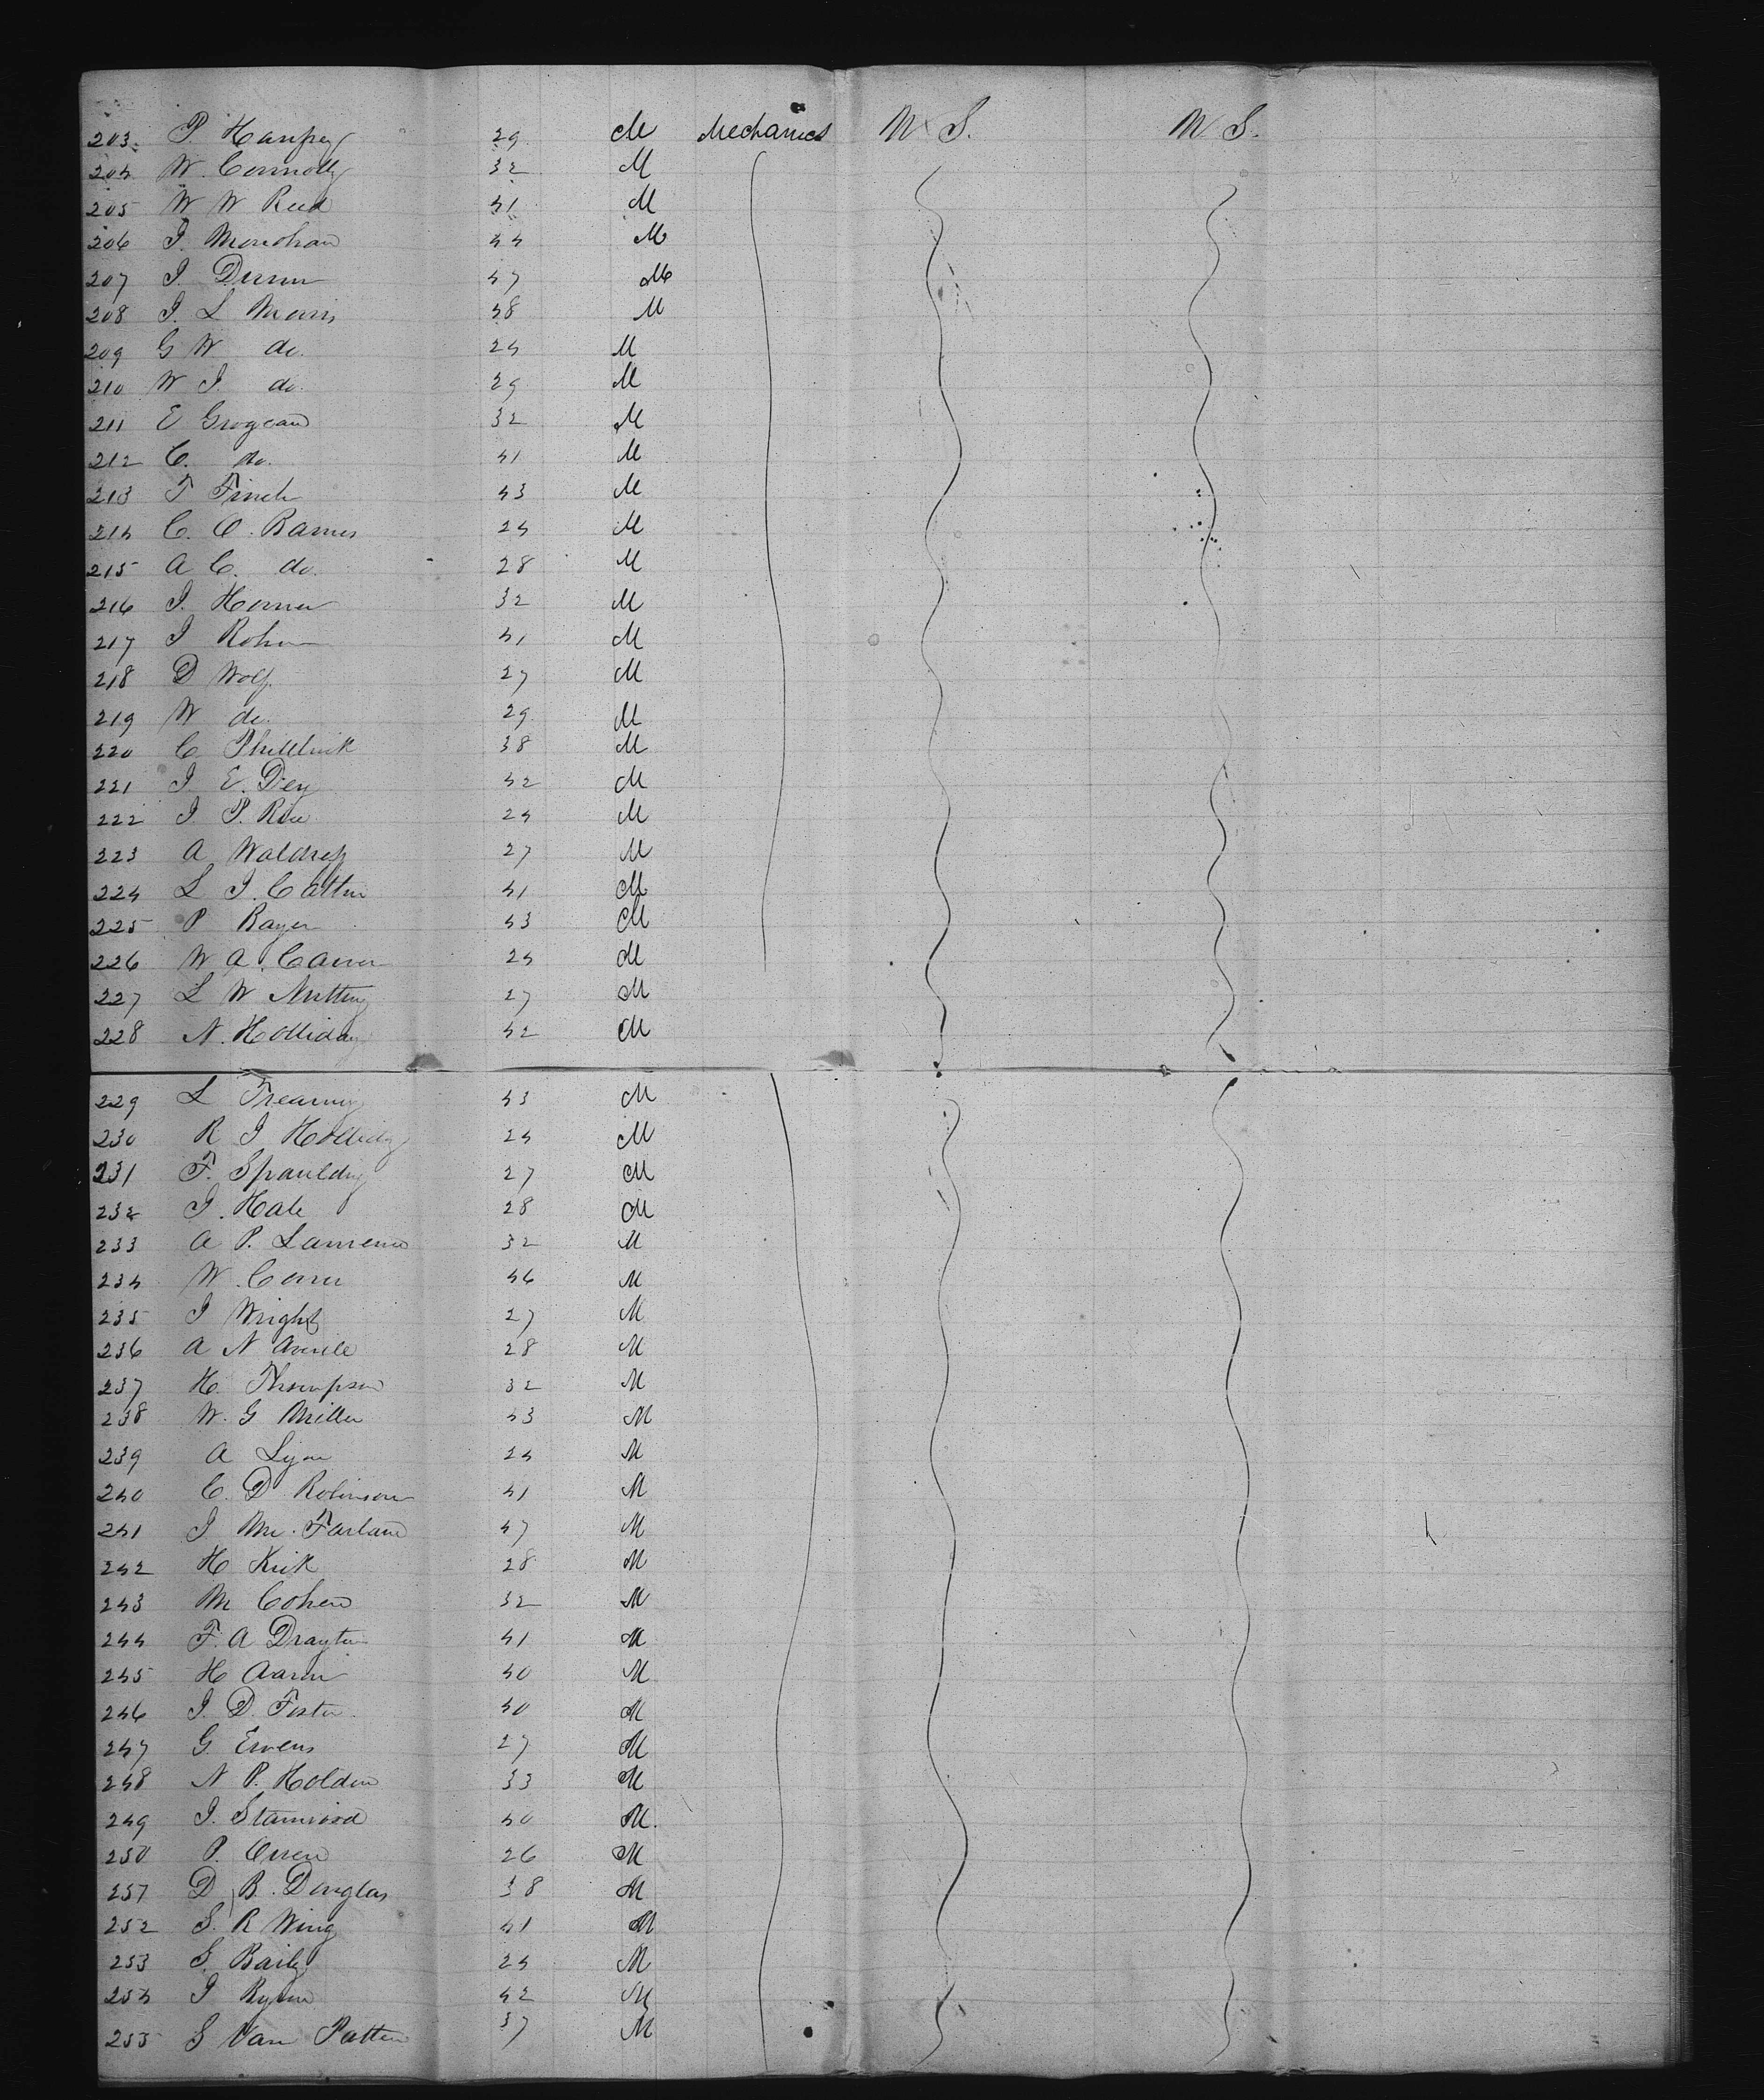 203. P. Hanfrey 29 M Mechanics U S. U S.
204 W. Connolly 32 M
205 W W Reed 41 M
206 J. Monohan 44 M
207 J. Dunn 47 M
208 J. L Morris 38 M
209 G W do. 24 M
210 W J do. 29 M
211 E Grogean 32 M
212 C. do. 41 M
213 T Finch 43 M
214 C. O. Barnes 24 M
215 A C. do. 28 M
216 J. Horner 32 M
217 J 41 M
218 D Wolf 27 M
219 W do. 29 M
220 C 38 M
221 J E. Dey 42 M
222 J P. 24 M
223 A 27 M
224 L J. 41 M
225 P 43 M
226 W A. Carver 24 M
227 L W Nutting 27 M
228 N. Holliday 42 M
229 L 43 M
230 R J Holliday 24 M
231 F. Spaulding 27 M
232 J. Hale 28 M
233 A P. Lawrence 32 M
234 W. 46 M
235 J Wright 27 M
236 A N Averile 28 M
237 H. Thompson 32 M
238 W. G Miller 43 M
239 A Lyon 24 M
240 C. D Robinson 41 M
241 J. Mc. Farland 47 M
242 H Kirk 28 M
243 M Cohen 32 M
244 F. A Drayton 41 M
245 H Aaron 40 M
246 J. D. Foster 40 M
247 G. Ervens 27 M
248 N P. Holden 33 M
249 J. Stanwood 40 M.
250 P. Owen 26 M
251 D B. Douglas 38 M
252 S. R Wing 41 M
253 S. Baily 24 M
254 J 42 M
255 S Van Patten 37 M